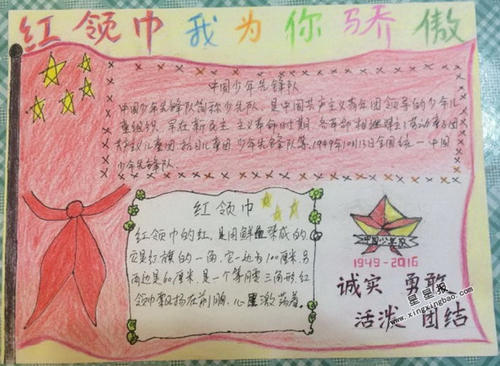 红领巾我为你骄傲
中国少年先锋队
中国少年先锋队简称少先队,是中国共产主义青年团领导的少年儿
童组织,早在新民主主义革命时期,各革命
共产主义儿童团、抗日儿童团、少年先锋队等,1949年10月13日全国统一中国
少年先锋队.
红领巾
红领巾的红,是用鲜血染成的
它是红旗的一角,它一边长100厘米,另
两边是60厘米,是一个等腰三角形.红
领巾飘扬在前胸,心里激荡着.
1949-2016
诚实 勇敢
活泼 团结
星星报
www.xingxingbao.com